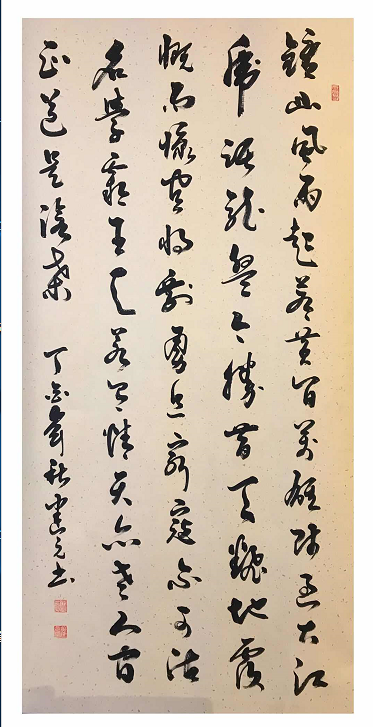 鐘山風雨起蒼黃百萬雄師過大江
虎踞龍盤今勝昔天翻地覆
慨而慷宜將剩勇追窮寇不可沽
名學霸王天若有情天亦老人間
正道是滄桑 丁酉年秋書